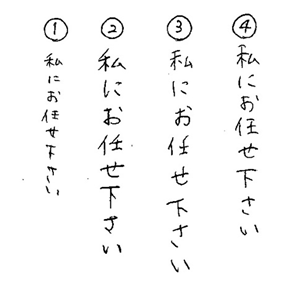 ① 私にお任せ下さい
② 私にお任せ下さい
③ 私にお任せ下さい
④ 私にお任せ下さい